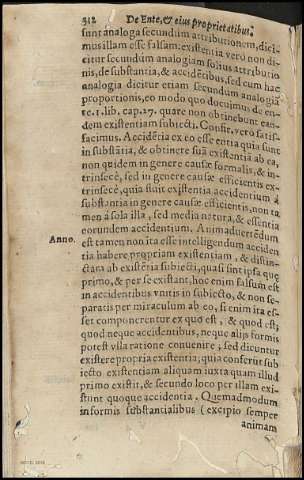 312 De Ente, & eius proprietatibus.
sunt analoga secundum attributionem, dici
mus illam esse falsam: existentia vero non di
citur secundum analogiam solius attributio
nis, de substantia, & accidētibus, sed cum hac
analogia dicitur etiam secundum analogiā
proportionis, eo modo quo docuimus de en-
te. 1. lib. cap. 27. quare non obtinebunt ean-
dem existentiam subiecti. Conſtr. vero satis-
facimus. Accidētia ex eo esse entia quia sunt
in substātia, & obtinere suā existentiā ab ea,
non quidem in genere causæ formalis, & in-
trinsecè, sed in genere causæ efficientis ex-
trinsecè, quia fluit existentia accidentium à
substantia in genere causæ efficientis, non ta
men à sola illa, sed media natura, & essentia
eorundem accidentium. Animaduertēdum
Anno.
est tamen non ita esse intelligendum acciden
tia habere propriam existentiam, & distin-
ctam ab existētia subiecti, quasi sint ipsa que
primo, & per se existant, hoc enim falsum est
in accidentibus vnitis in subiecto, & non se-
paratis per miraculum ab eo, si enim ita es-
set componerentur ex quo est, & quod est;
quod neque accidentibus, neque alijs formis
potest vlla ratione conuenire, sed dicuntur
existere propria existentia, quia conferūt sub
iecto existentiam aliquam iuxta quam illud
primo existit, & secundo loco per illam exi-
stunt quoque accidentia. Quemadmodum
in formis substantialibus (excipio semper
animam